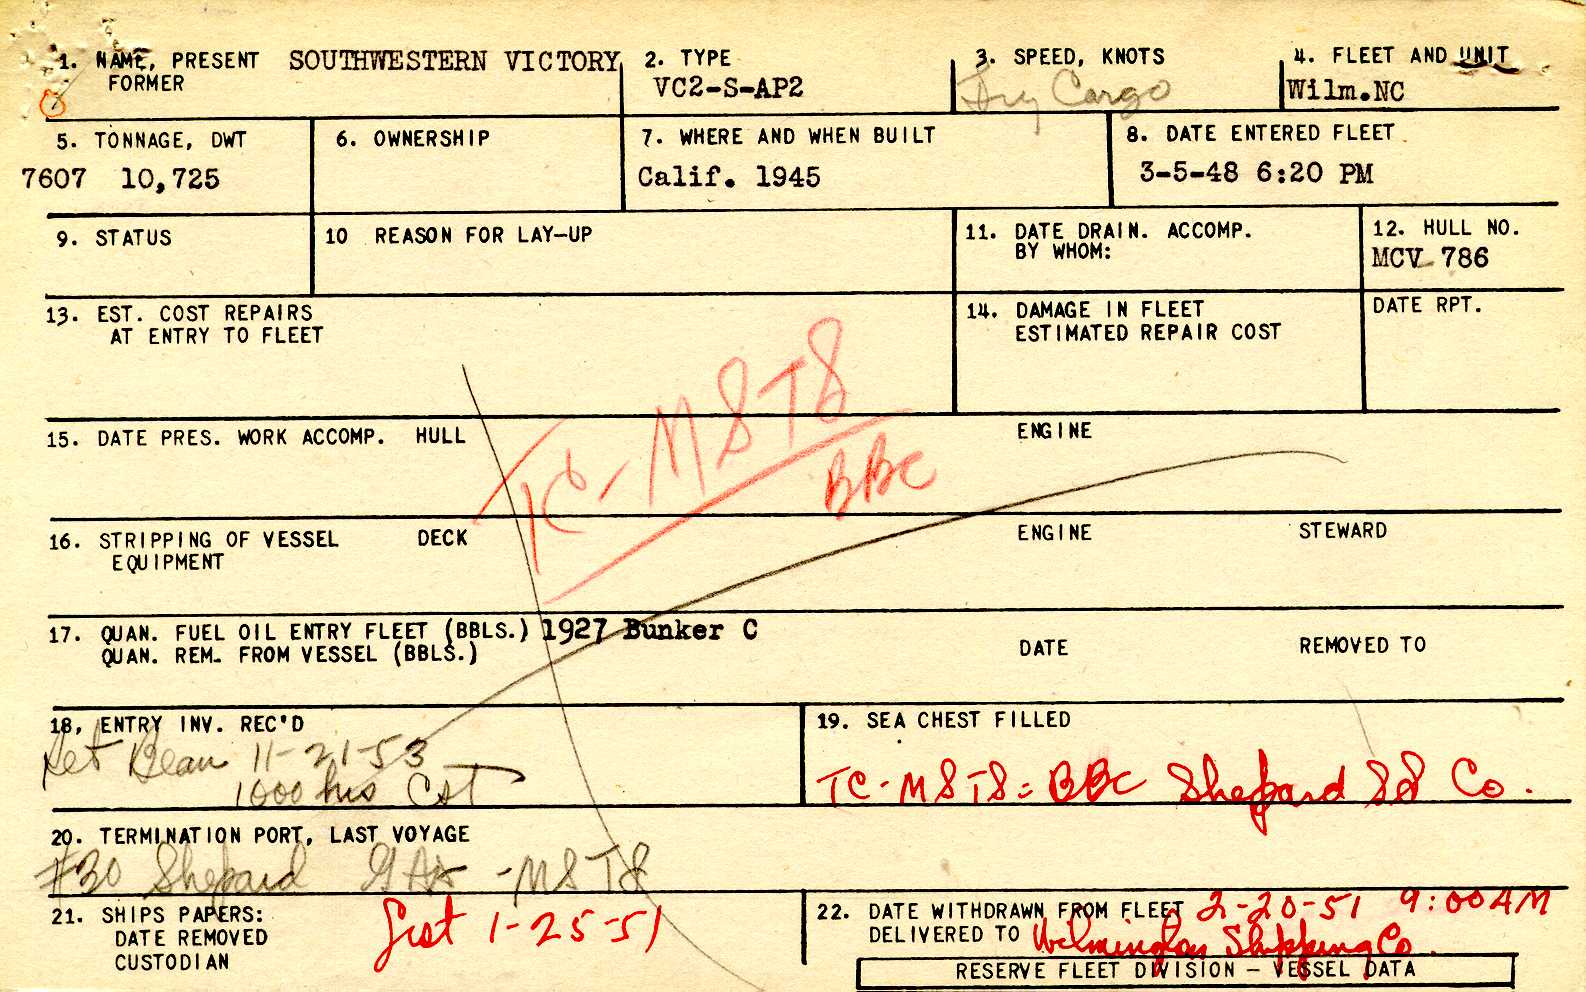 1. NAME, PRESENT SOUTHWESTERN VICTORY
FORMER
2. TYPE
VC2-S-AP2
3. SPEED, KNOTS
Dry Cargo
4. FLEET AND UNIT
Wilm.NC
5. TONNAGE, DWT
7607 10,725
6. OWNERSHIP
7. WHERE AND WHEN BUILT
Calif. 1945
8. DATE ENTERED FLEET
3-5-48 6:20 PM
9. STATUS
10 REASON FOR LAY-UP
11. DATE DRAIN. ACCOMP.
BY WHOM:
12. HULL NO.
MCV 786
13. EST. COST REPAIRS
AT ENTRY TO FLEET
14. DAMAGE IN FLEET
ESTIMATED REPAIR COST
DATE RPT.
TC-MSTS
BBC
15. DATE PRES. WORK ACCOMP. HULL ENGINE
16. STRIPPING OF VESSEL DECK ENGINE STEWARD
EQUIPMENT
17. QUAN. FUEL OIL ENTRY FLEET (BBLS.) 1927 Bunker C
QUAN. REM. FROM VESSEL (BBLS.) DATE REMOVED TO
18, ENTRY INV. REC'D
Ret Beau 11-21-53
1000 hrs Cst
19. SEA CHEST FILLED
TC-MSTS= BBC Shepard SS Co.
20. TERMINATION PORT, LAST VOYAGE
#30 Shepard GAA -MSTS
21. SHIPS PAPERS:
DATE REMOVED
CUSTODIAN
1-25-51
22. DATE WITHDRAWN FROM FLEET 2-20-51 9:00AM
DELIVERED TO Wilmington Shipping Co.
RESERVE FLEET DIVISION – VESSEL DATA